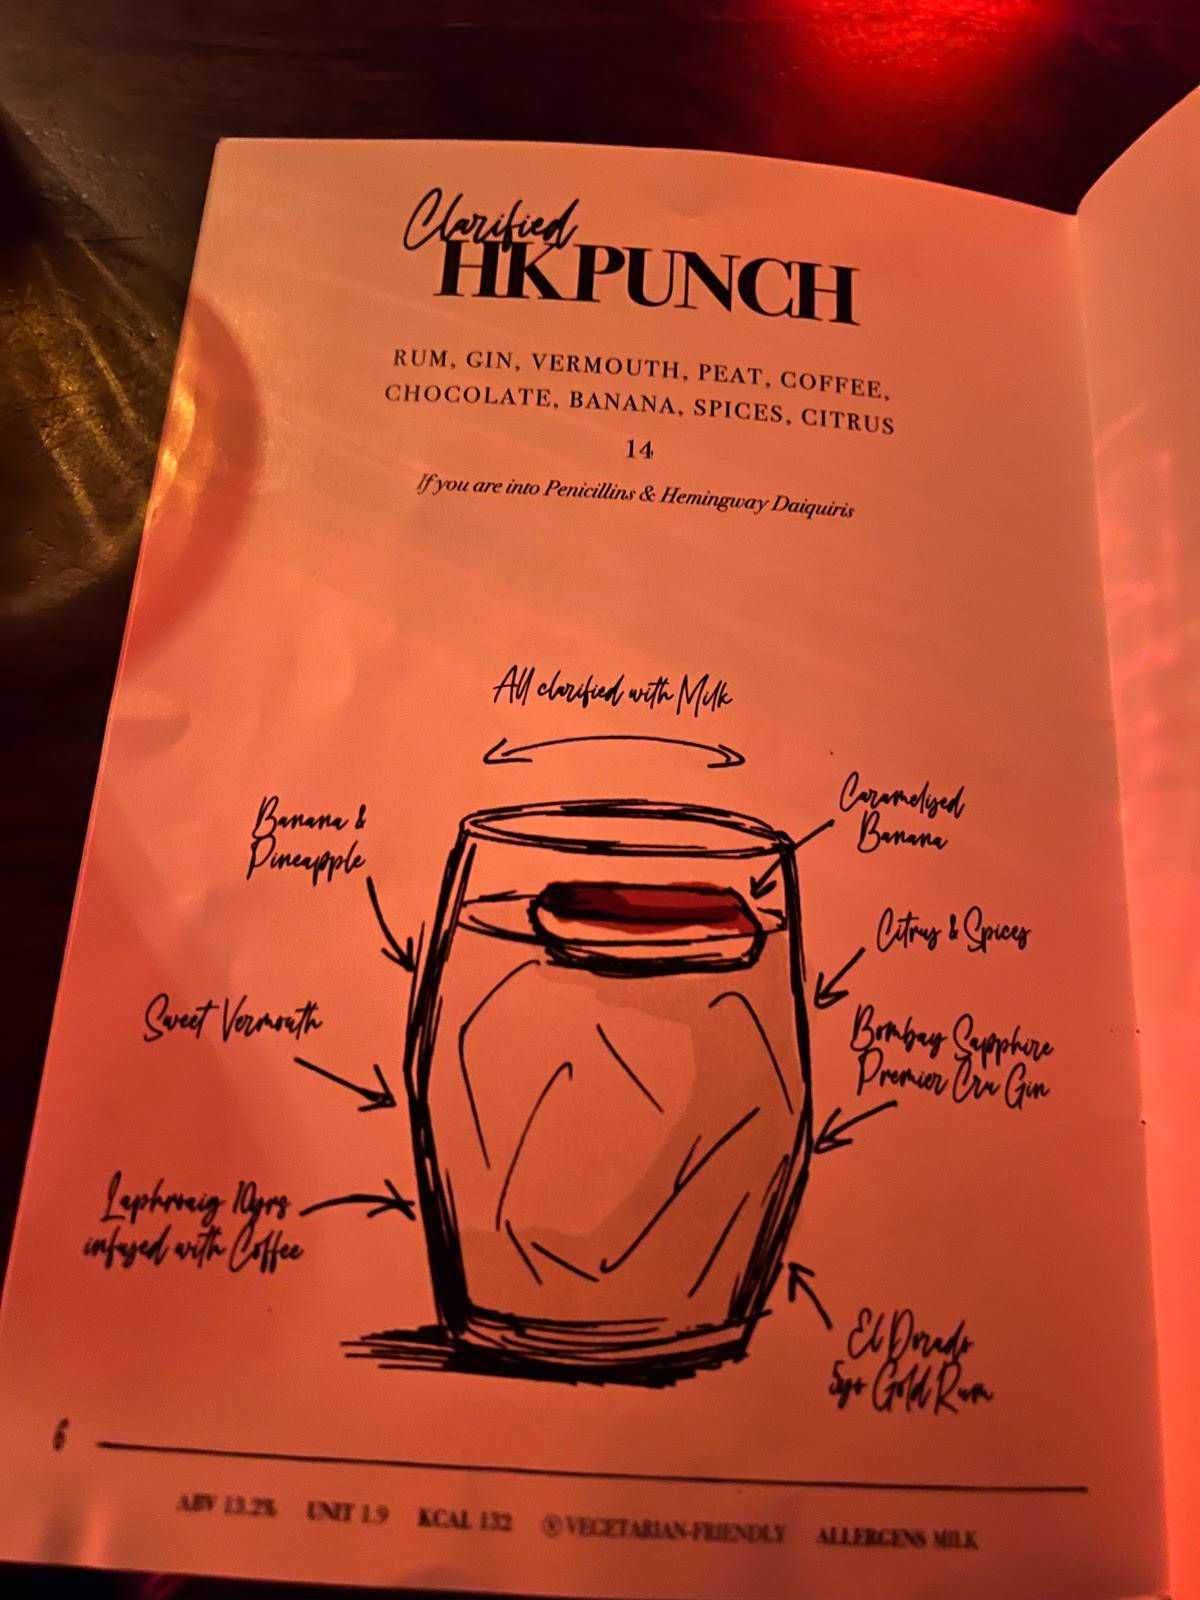 Clarified
HK PUNCH
RUM, GIN, VERMOUTH, PEAT, COFFEE,
CHOCOLATE, BANANA, SPICES, CITRUS
14
If you are into Penicillins & Hemingway Daiquiris
All clarified with Milk
Banana &
Pineapple
Caramelised
Banana
Citrus & Spices
Sweet Vermouth
Bombay Sapphire
Premier Cru Gin
Laphroaig 10yrs
infused with Coffee
El Dorado
5yo Gold Rum
6
ABV 13.2% UNIT 1.9 KCAL 132 Ⓥ VEGETARIAN-FRIENDLY ALLERGENS MILK